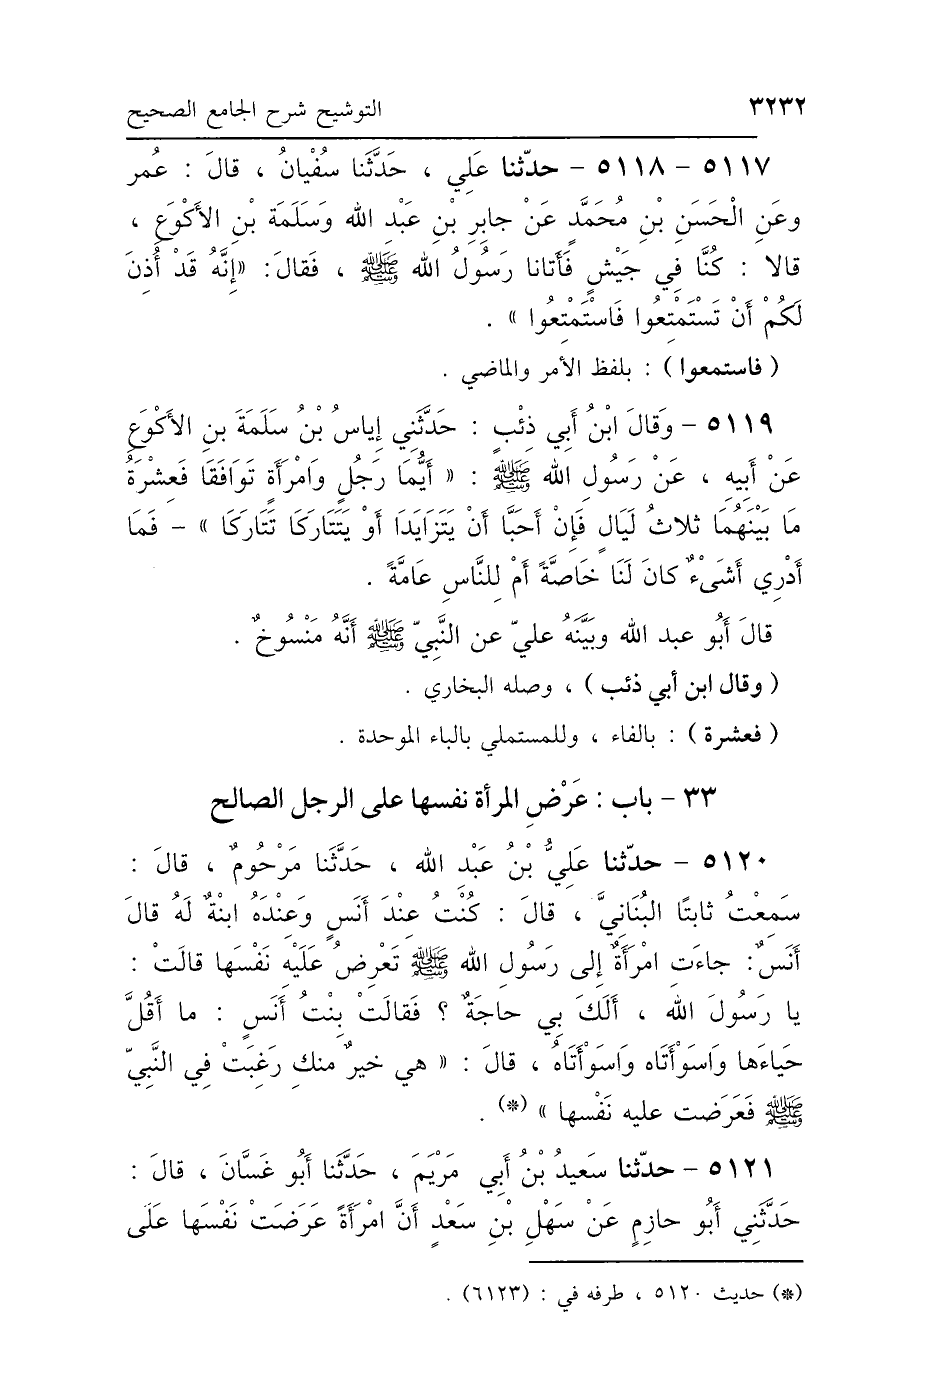 ٣٢٣٢ التوشيح شرح الجامع الصحيح
٥١١٧ - ٥١١٨ - حدّثنا عَلَي ، حَدَّثَنا سُفْيانُ ، قالَ : عُمر
وعَنِ الْحَسَنِ بْنِ مُحَمَّدٍ عَنْ جابِرِ بْنِ عَبْدِ الله وَسَلَمَة بْنِ الأَكْوَعِ ،
قالا : كُنَّا فِي جَيْشٍ فَأَتانا رَسُولُ الله ﷺ ، فَقالَ: «إِنَّهُ قَدْ أُذِنَ
لَكُمْ أَنْ تَسْتَمْتِعُوا فَاسْتَمْتِعُوا » .
( فاستمعوا ) : بلفظ الأمر والماضي .
٥١١٩ - وَقالَ ابْنُ أَبي ذِئْبٍ : حَدَّثَنِي إِياسُ بْنُ سَلَمَةَ بنِ الأَكْوَعِ
عَنْ أَبِيهِ ، عَنْ رَسُولِ الله ﷺ : « أَيُّمَا رَجُلٍ وَامْرَأَةٍ تَوَافَقَا فَعِشْرَةُ
مَا بَيْنَهُمَا ثلاثُ لَيَالٍ فَإِنْ أَحَبَّا أَنْ يَتَزَايَدَا أَوْ يَتَتَارَكَا تَتَارَكَا » - فَمَا
أَدْرِي أَشَىْءٌ كانَ لَنَا خَاصَّةً أَمْ لِلنَّاسِ عَامَّةً .
قالَ أَبُو عبد الله وبَيَّنَهُ عليّ عن النَّبِيّ ﷺ أَنَّهُ مَنْسُوخٌ .
( وقال ابن أبي ذئب ) ، وصله البخاري .
( فعشرة ) : بالفاء ، وللمستملي بالباء الموحدة .
٣٣ - باب : عَرْضِ المرأة نفسها على الرجل الصالح
٥١٢٠ - حدّثنا عَلَيُّ بْنُ عَبْدِ الله ، حَدَّثَنا مَرْحُومٌ ، قالَ :
سَمِعْتُ ثابتًا البُنَانِيَّ ، قالَ : كُنْتُ عِنْدَ أَنَسٍ وَعِنْدَهُ ابنْةٌ لَهُ قالَ
أَنَسٌ: جاءَتِ امْرَأَةٌ إلى رَسُولِ الله ﷺ تَعْرِضُ عَلَيْهِ نَفْسَها قالَتْ :
يا رَسُولَ الله ، أَلَكَ بِي حاجَةٌ ؟ فَقالَتْ بِنْتُ أَنَسٍ : ما أَقُلَّ
حَياءَها وَاسَوْأَتَاه وَاسَوْأَتَاهُ ، قالَ : « هي خيرٌ منكِ رَغِبَتْ فِي النَّبِيّ
ﷺ فَعَرَضت عليه نَفْسها » (*) .
٥١٢١ - حدّثنا سَعِيدُ بْنُ أَبِي مَرْيَمَ ، حَدَّثَنا أَبُو غَسَّانَ ، قالَ :
حَدَّثَنِي أَبُو حازِمٍ عَنْ سَهْلِ بْنِ سَعْدٍ أَنَّ امْرَأَةً عَرَضَتْ نَفْسَهَا عَلَى
(*) حديث ٥١٢٠ ، طرفه في : (٦١٢٣) .